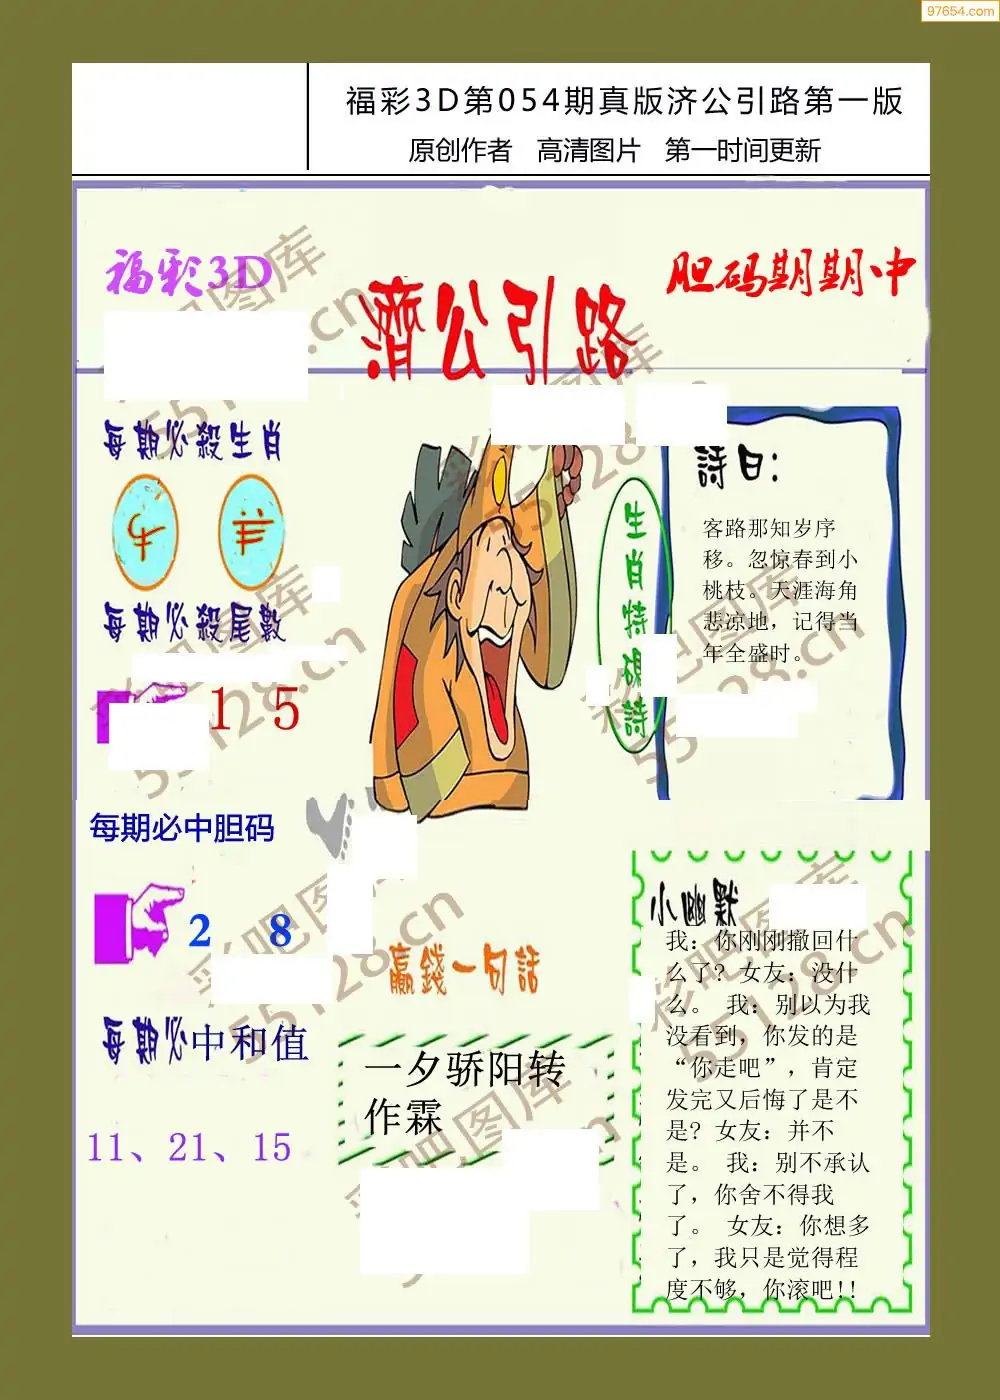 97654.com
福彩3D第054期真版济公引路第一版
原创作者 高清图片 第一时间更新
福彩3D
胆码期期中
濟公引路
每期必殺生肖
牛 羊
每期必殺尾數
1 5
每期必中胆码
2 8
每期必中和值
11、21、15
生肖特碼詩
詩曰:
客路那知岁序
移。忽惊春到小
桃枝。天涯海角
悲凉地，记得当
年全盛时。
贏錢一句話
一夕骄阳转
作霖
小幽默
我：你刚刚撤回什
么了? 女友：没什
么。 我：别以为我
没看到，你发的是
“你走吧”，肯定
发完又后悔了是不
是? 女友：并不
是。 我：别不承认
了，你舍不得我
了。 女友：你想多
了，我只是觉得程
度不够，你滚吧!!
彩吧图库
55128.cn